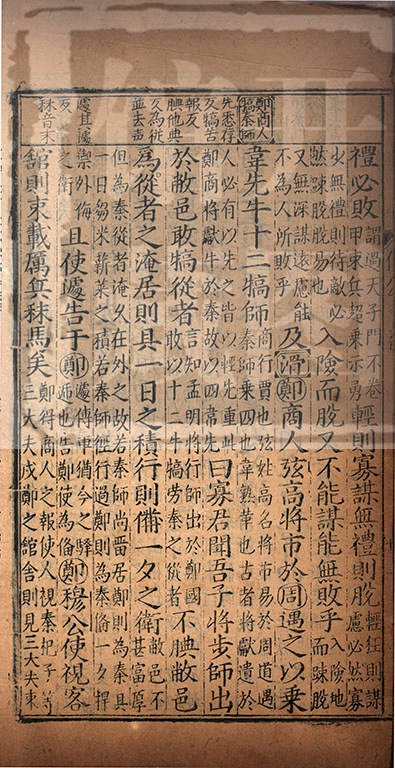 禮必敗謂過天子門不卷甲束兵超乘示勇輕則寡謀無禮則脫輕狂則謀慮必然寡
少無禮則待敵必然踈脫脫易也入險而脫又不能謀能無敗乎入險地而踈脫
又無深謀遠慮能不為人所敗乎及滑鄭商人弦高將市於周遇之以乘
韋先牛十二犒師商行賈也弦姓高名將市易於周道遇秦師乘四也韋熟革也古者將獻遺於
人必有以先之皆以輕先重此鄭商將獻牛於秦故以四韋先曰寡君聞吾子將步師出
於敝邑敢犒從者言知孟明將行師出於鄭國敢以十二牛犒勞秦之從者不腆敝邑
為從者之淹居則具一日之積行則備一夕之衛敝邑不甚富厚
但為秦從者淹久在外之故若秦師尚畱居鄭則為秦具一日芻米薪菜之積若秦師經行過鄭則為秦備一夕捍
禦外侮之衛且使遽告于鄭遽傳車猶今之驛師也告鄭使為備鄭穆公使視客
館則束載厲兵秣馬矣鄭得商人之報使人視秦杞子等三大夫戍鄭之館舍則見三大夫束
鄭商人
犒秦師
先悉存
反犒苦
報反
腆他典
反為從
並去声
遽其據
反
秣音末